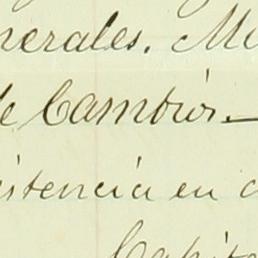 nerales. Mi
de Cambios.—
istencia en
Capit